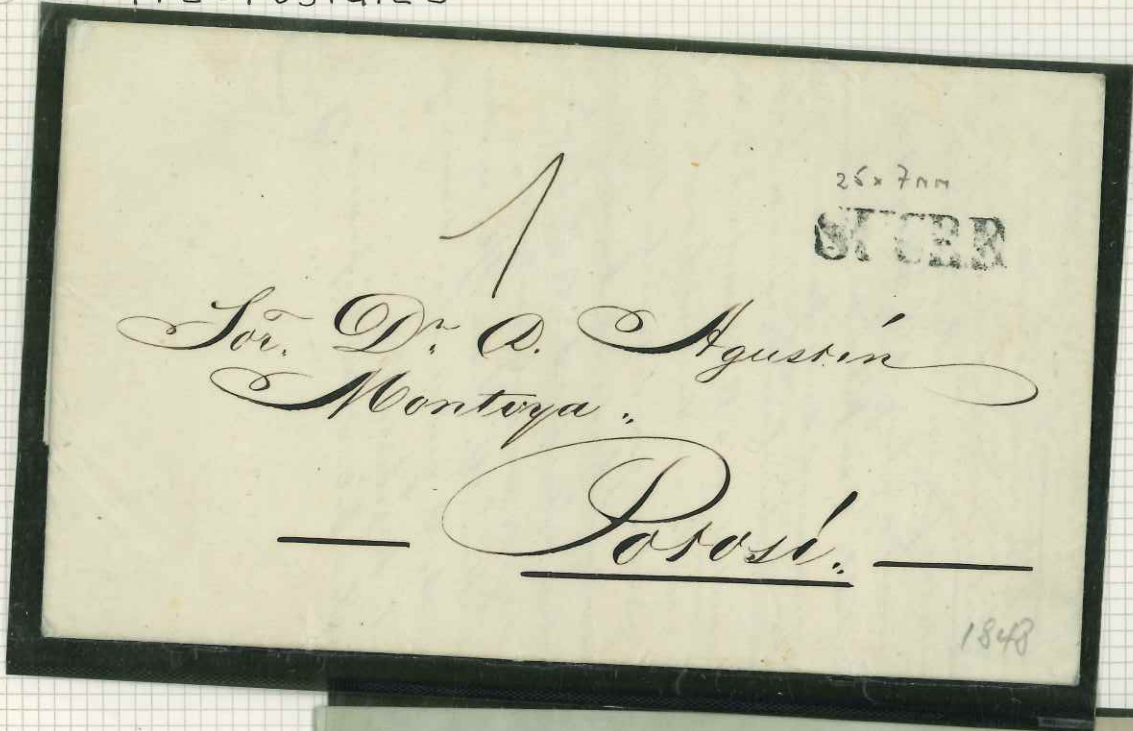 26 x 7 mm
SUCRE
1
Sor. Dr. D. Agustín
Montoya.,
Potosí.,
1848